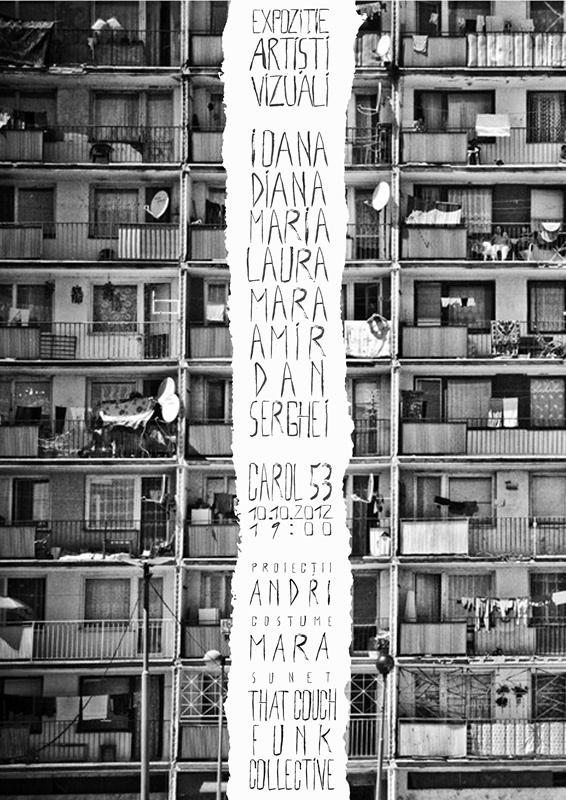 EXPOZIȚIE
ARTIȘTI
VIZUALI
IOANA
DIANA
MARIA
LAURA
MARA
AMIR
DAN
SERGHEI
CAROL 53
10.10.2012
19:00
PROIECȚII
ANDRI
COSTUME
MARA
SUNET
THAT COUCH
FUNK
COLLECTIVE